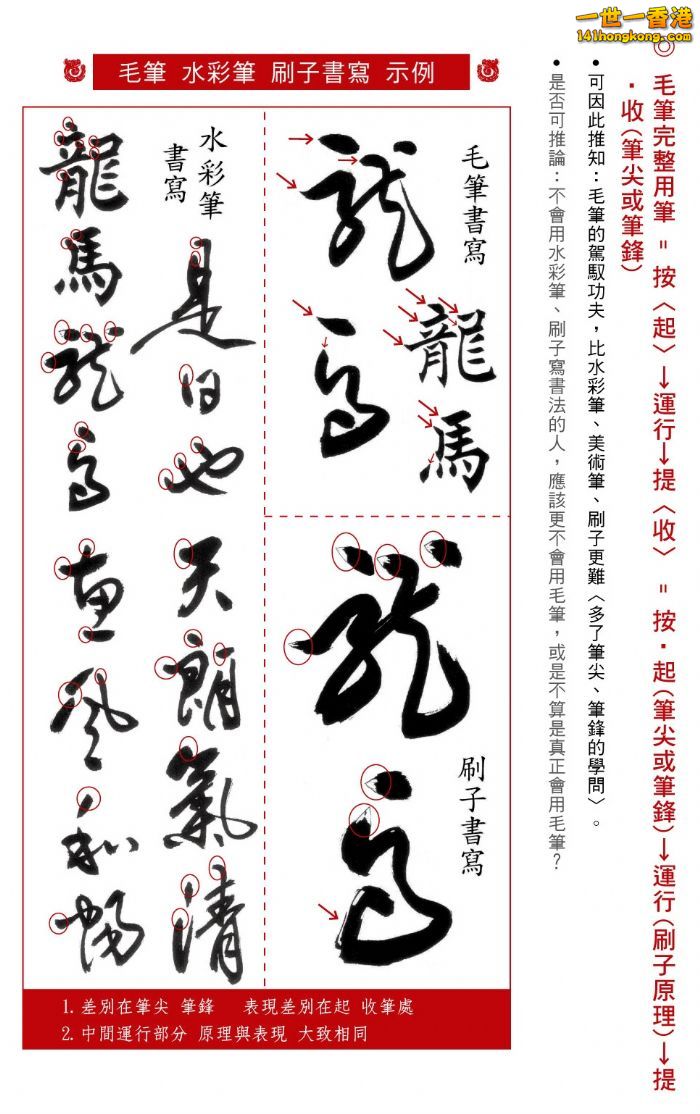 一世一香港
141hongkong.com
◎ 毛筆完整用筆 = 按〈起〉→運行→提〈收〉 = 按·起(筆尖或筆鋒)→運行(刷子原理)→提
·收(筆尖或筆鋒)
• 可因此推知：毛筆的駕馭功夫，比水彩筆、美術筆、刷子更難〈多了筆尖、筆鋒的學問〉。
• 是否可推論：不會用水彩筆、刷子寫書法的人，應該更不會用毛筆，或是不算是真正會用毛筆？
毛筆 水彩筆 刷子書寫 示例
毛筆書寫
龍馬
龍馬
刷子書寫
龍馬
水彩筆
書寫
是日也天朗氣清
龍馬龍馬惠風和暢
1. 差別在筆尖 筆鋒 表現差別在起 收筆處
2. 中間運行部分 原理與表現 大致相同